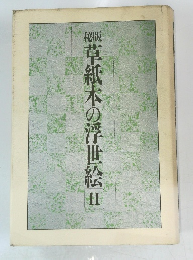 秘版
草紙本の浮世絵
II